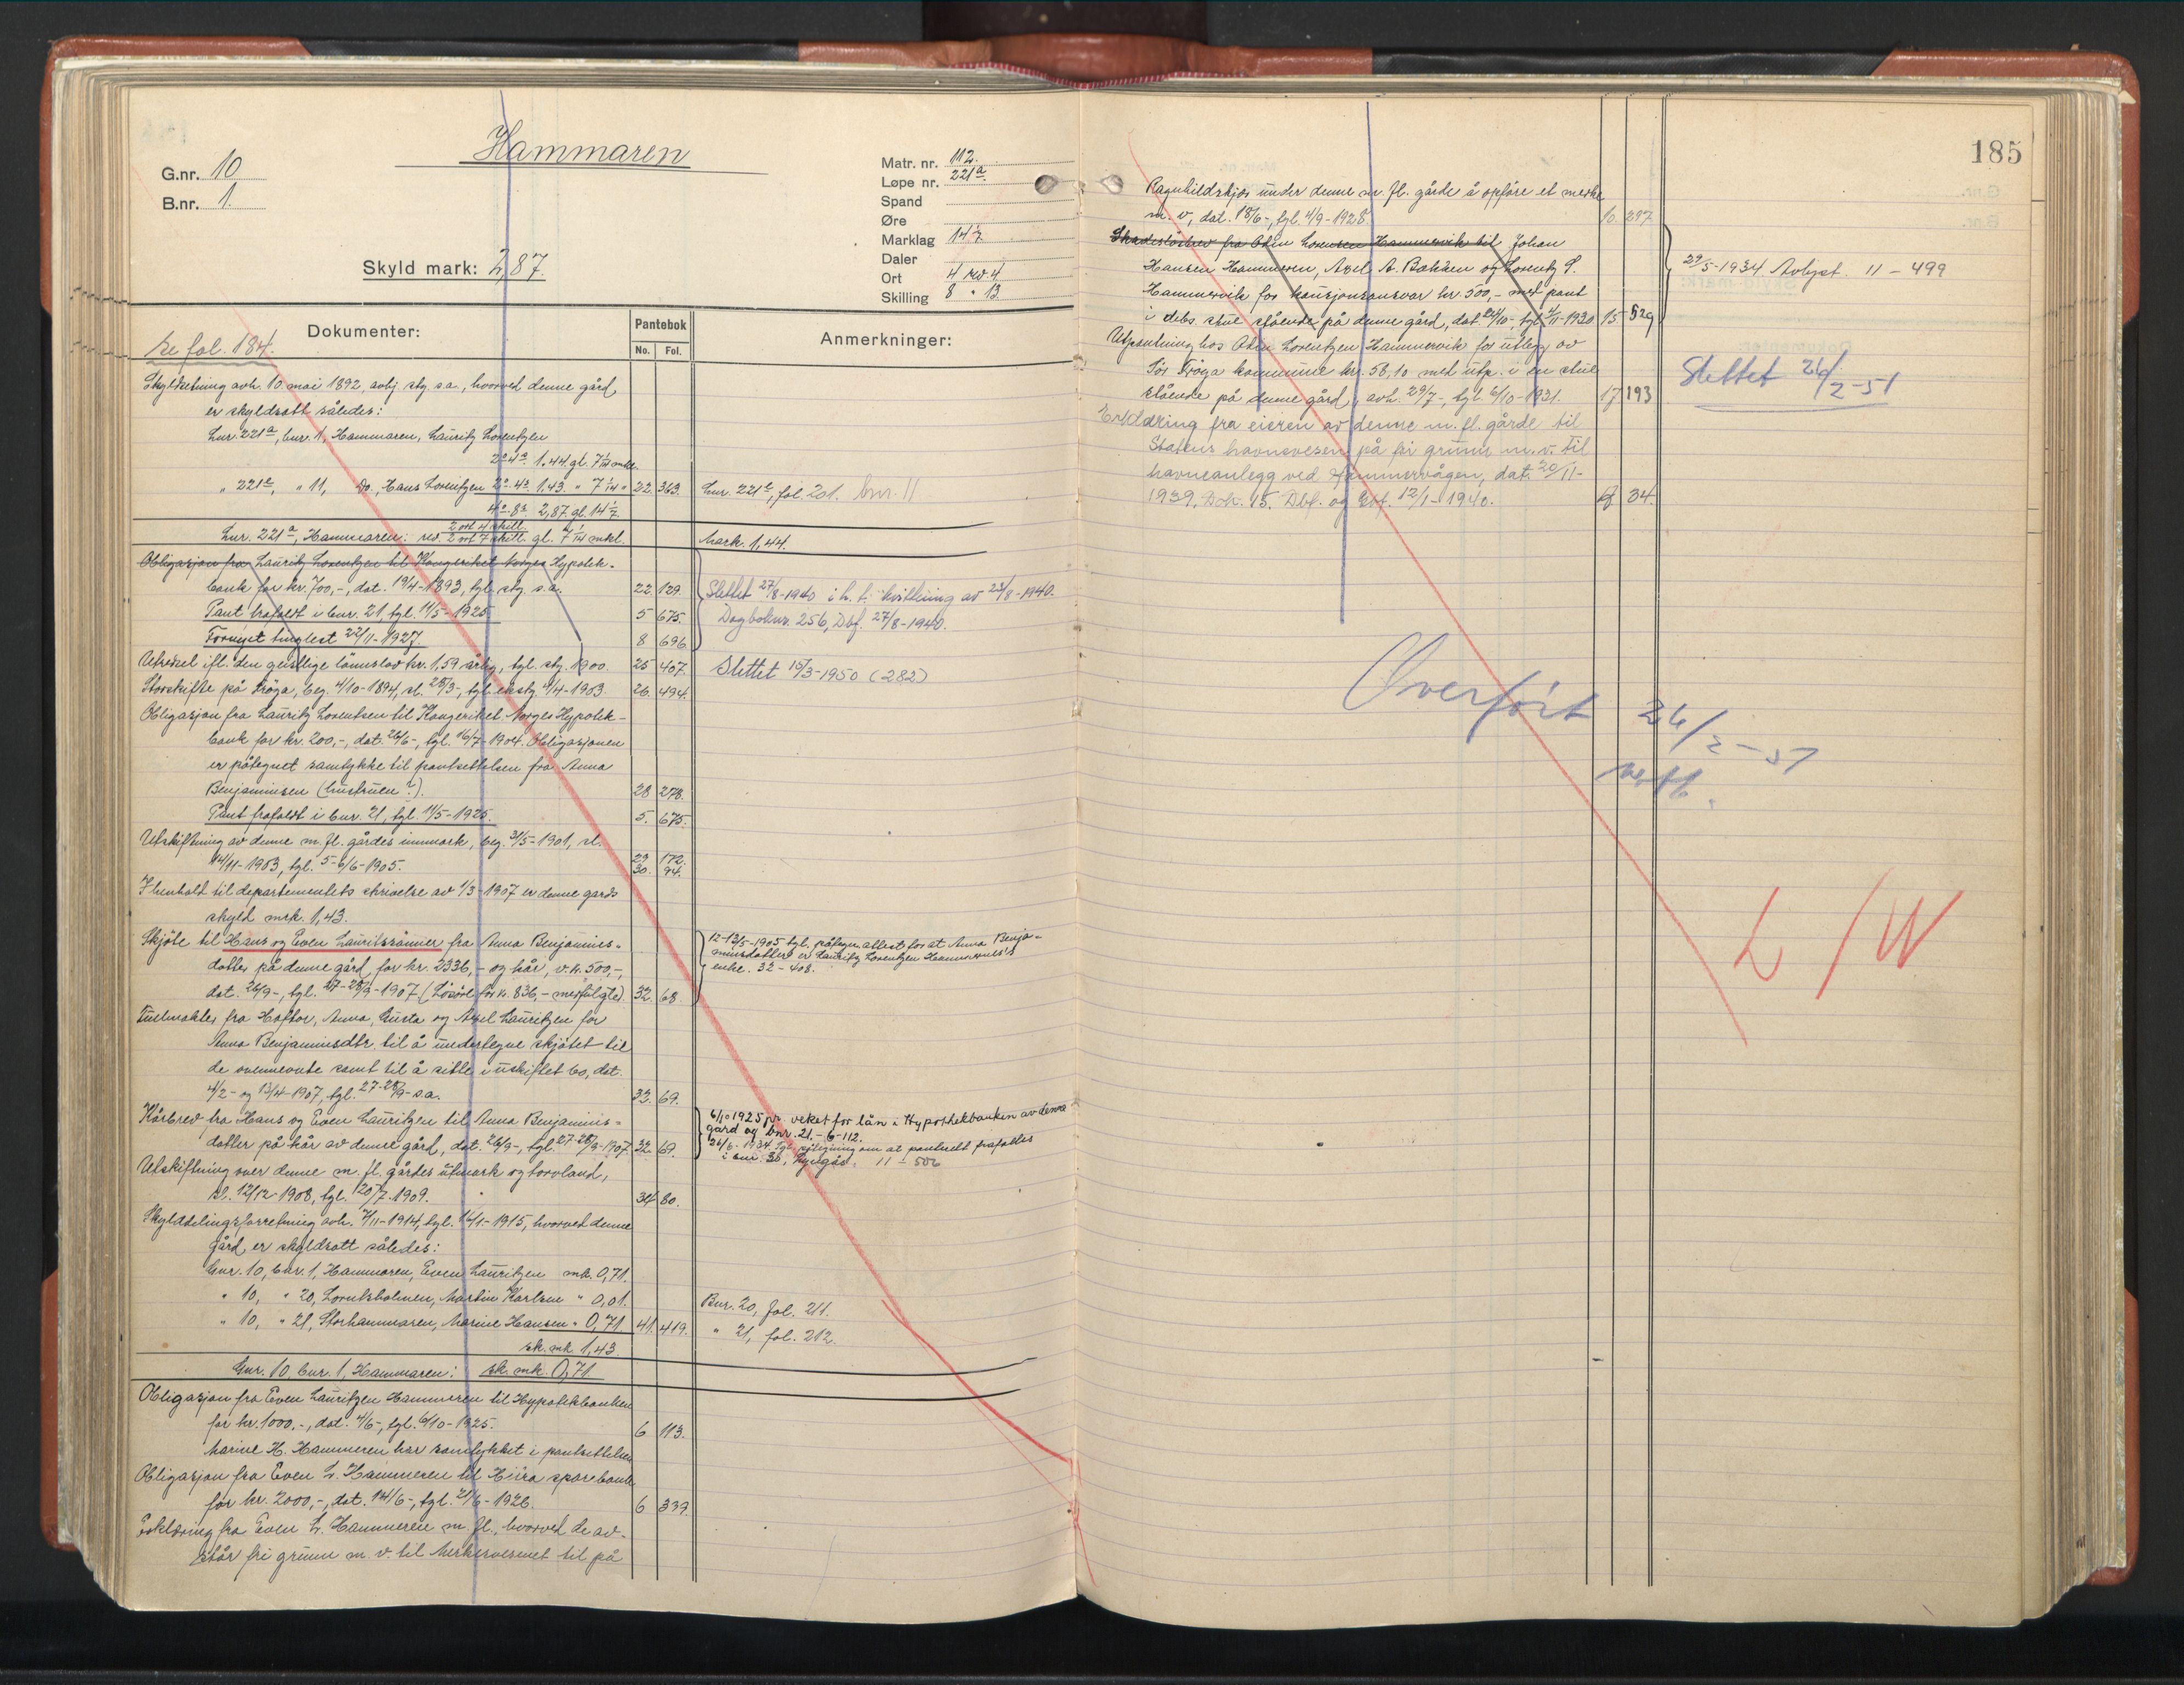 Hammaren
G.nr. 10
B.nr. 1.
Skyld mark: 2,87.
Matr. nr. 112.
Løpe nr. 221a.
Spand
Øre
Marklag 14 2/7
Daler
Ort 4 rd. 4
Skilling 8 " 13
se fol. 184.
Dokumenter:
Pantebok
No. Fol.
Anmerkninger:
Skyldsetning avh. 10 mai 1892, avhj. sty. s.a., hvorved denne gård
er skyldsatt således:
Lnr. 221a, bnr. 1, Hammaren, Lauritz Lorentzen
2o 4s 1.44. gl. 7 1/14 mkl.
" 221c, " 11, Do., Hans Lorentzen 2o 4s 1,43. " 7 1/14 " 22. 363. Lnr. 221c, fol. 201. bnr. 11
4o 8s 2,87. gl. 14 1/7.
Lnr. 221a, Hammaren: red. 2 ort 4 skill. 2 ort 7 skill. gl. 7 1/14 mkl. Mark. 1,44.
Obligasjon fra Lauritz Lorentzen til Kongeriket Norges Hypotek-
bank for kr. 700,-, dat. 19/4-1893, tgl. sty. s.a. 22 129. Slettet 27/8-1940 i h. t. kvittering av 23/8-1940.
Pant frafaldt i bnr. 21, tgl. 11/5-1925 5 675. Dagboknr. 256, Dbf. 27/8-1940.
Fornyet tinglest 22/11-1927. 8 696
Utredsel ifl. den geistlige lønnslov kr. 1,59 årlig, tgl. sty. 1900. 25 407. Slettet 15/3-1950 (282)
Storskifte på Frøga, beg. 4/10-1894, sl. 28/3-, tgl. eksty. 4/4-1903. 26. 494.
Obligasjon fra Lauritz Lorentsen til Kongeriket Norges Hypotek-
bank for kr. 200,-, dat. 26/6-, tgl. 16/7-1904. Obligasjonen
er påtegnet samtykke til pantsettelsen fra Anna
Benjaminsen (hustruen ?). 28 278.
Pant frafaldt i bnr. 21, tgl. 11/5-1925. 5. 675.
Utskiftning av denne m. fl. gårdes innmark, beg. 31/5-1901, sl. 29 172.
14/11-1903, tgl. 5-6/6-1905. 30. 94.
I henhold til departementets skrivelse av 1/3-1907 er denne gards
skyld mrk. 1,43.
Skjøte til Hans og Even Lauritssønner fra Anna Benjamins-
datter på denne gård for kr. 2336,- og kår, v. kr. 500,-,
dat. 26/9-, tgl. 27-28/9-1907 (Løsøre for kr. 836,- medfulgte). 32. 68.
12-13/5-1905 tgl. påtegn. attest for at Anna Benja-
minsdatter er Lauritz Lorentzen Hammernes's
enke. 32 - 408.
Fullmakter fra Haftor, Anna, Gusta og Axel Lauritzen for
Anna Benjaminsdtr. til å undertegne skjøtet til
de ovennevnte samt til å sitte i uskiftet bo, dat.
4/2- og 13/4-1907, tgl. 27-28/9- s.a. 32. 69.
Kårbrev fra Hans og Even Lauritzen til Anna Benjamins-
datter på kår av denne gård, dat. 26/9-, tgl. 27-28/9-1907. 32. 69.
6/10 1925 pr. veket for lån i Hypothekbanken av denne
gard og bnr. 21. - 6-112.
26/6-1934 tgl. påtegning om at panterett frafalles
i bnr. 36, Nygår. 11 - 506
Utskiftning over denne m. fl. gårdes utmark og torvland,
sl. 12/12-1908, tgl. 20/7-1909. 34 80.
Skylddelingsforretning avh. 7/11-1914, tgl. 14/1-1915, hvorved denne
gård er skyldsatt således:
Gnr. 10, bnr. 1, Hammaren, Even Lauritzen mk. 0,71.
" 10, " 20, Lorntsholmen, Martin Karlsen " 0,01. Bnr. 20, fol. 211.
" 10, " 21, Storhammaren, Marine Hansen " 0,71 41. 419. " 21, fol. 212.
sk. mk. 1,43.
Gnr. 10, bnr. 1, Hammaren: sk. mk. 0,71
Obligasjon fra Even Lauritzen Hammeren til Hypotekbanken
for kr. 1000,-, dat. 4/6-, tgl. 6/10-1925. 6 113.
Marine H. Hammeren har samtykket i pantsettelsen
Obligasjon fra Even L. Hammeren til Hitra sparebank
for kr. 2000,-, dat. 14/6-, tgl. 21/6-1926. 6 339.
Erklæring fra Even L. Hammeren m. fl., hvorved de av-
står fri grunn m. v. til Merkesvesenet til på
185
Ragnhildskjær under denne m. fl. gårde å opføre et merke
m. v., dat. 18/6-, tgl. 4/9-1928. 10 297.
Skadesløsbrev fra Odin Lorentzen Hammervik til Johan
Hansen Hammeren, Axel A. Bakken og Lorentz P.
Hammervik for kausjonsansvar kr. 500,- med pant
i debs. stue stående på denne gård, dat. 24/10- tgl. 4/11-1930 15 529
29/5-1934 Avlyst. 11 - 499
Utpantning hos Odin Lorentzen Hammervik for utlegg av
Sør Frøya kommune kr. 58,10 med utp. i en stue
stående på denne gård, avh. 29/7-, tgl. 6/10-1931. 17 193
Slettet 26/2-51
Erklæring fra eieren av denne m. fl. gårde til
Statens havnevesen på fri grunn m. v. til
havneanlegg ved Hammervågen, dat. 20/11-
1939. Dok. 15. Dbf. og Gbf. 12/1-1940. 34.
Overført 26/2-51